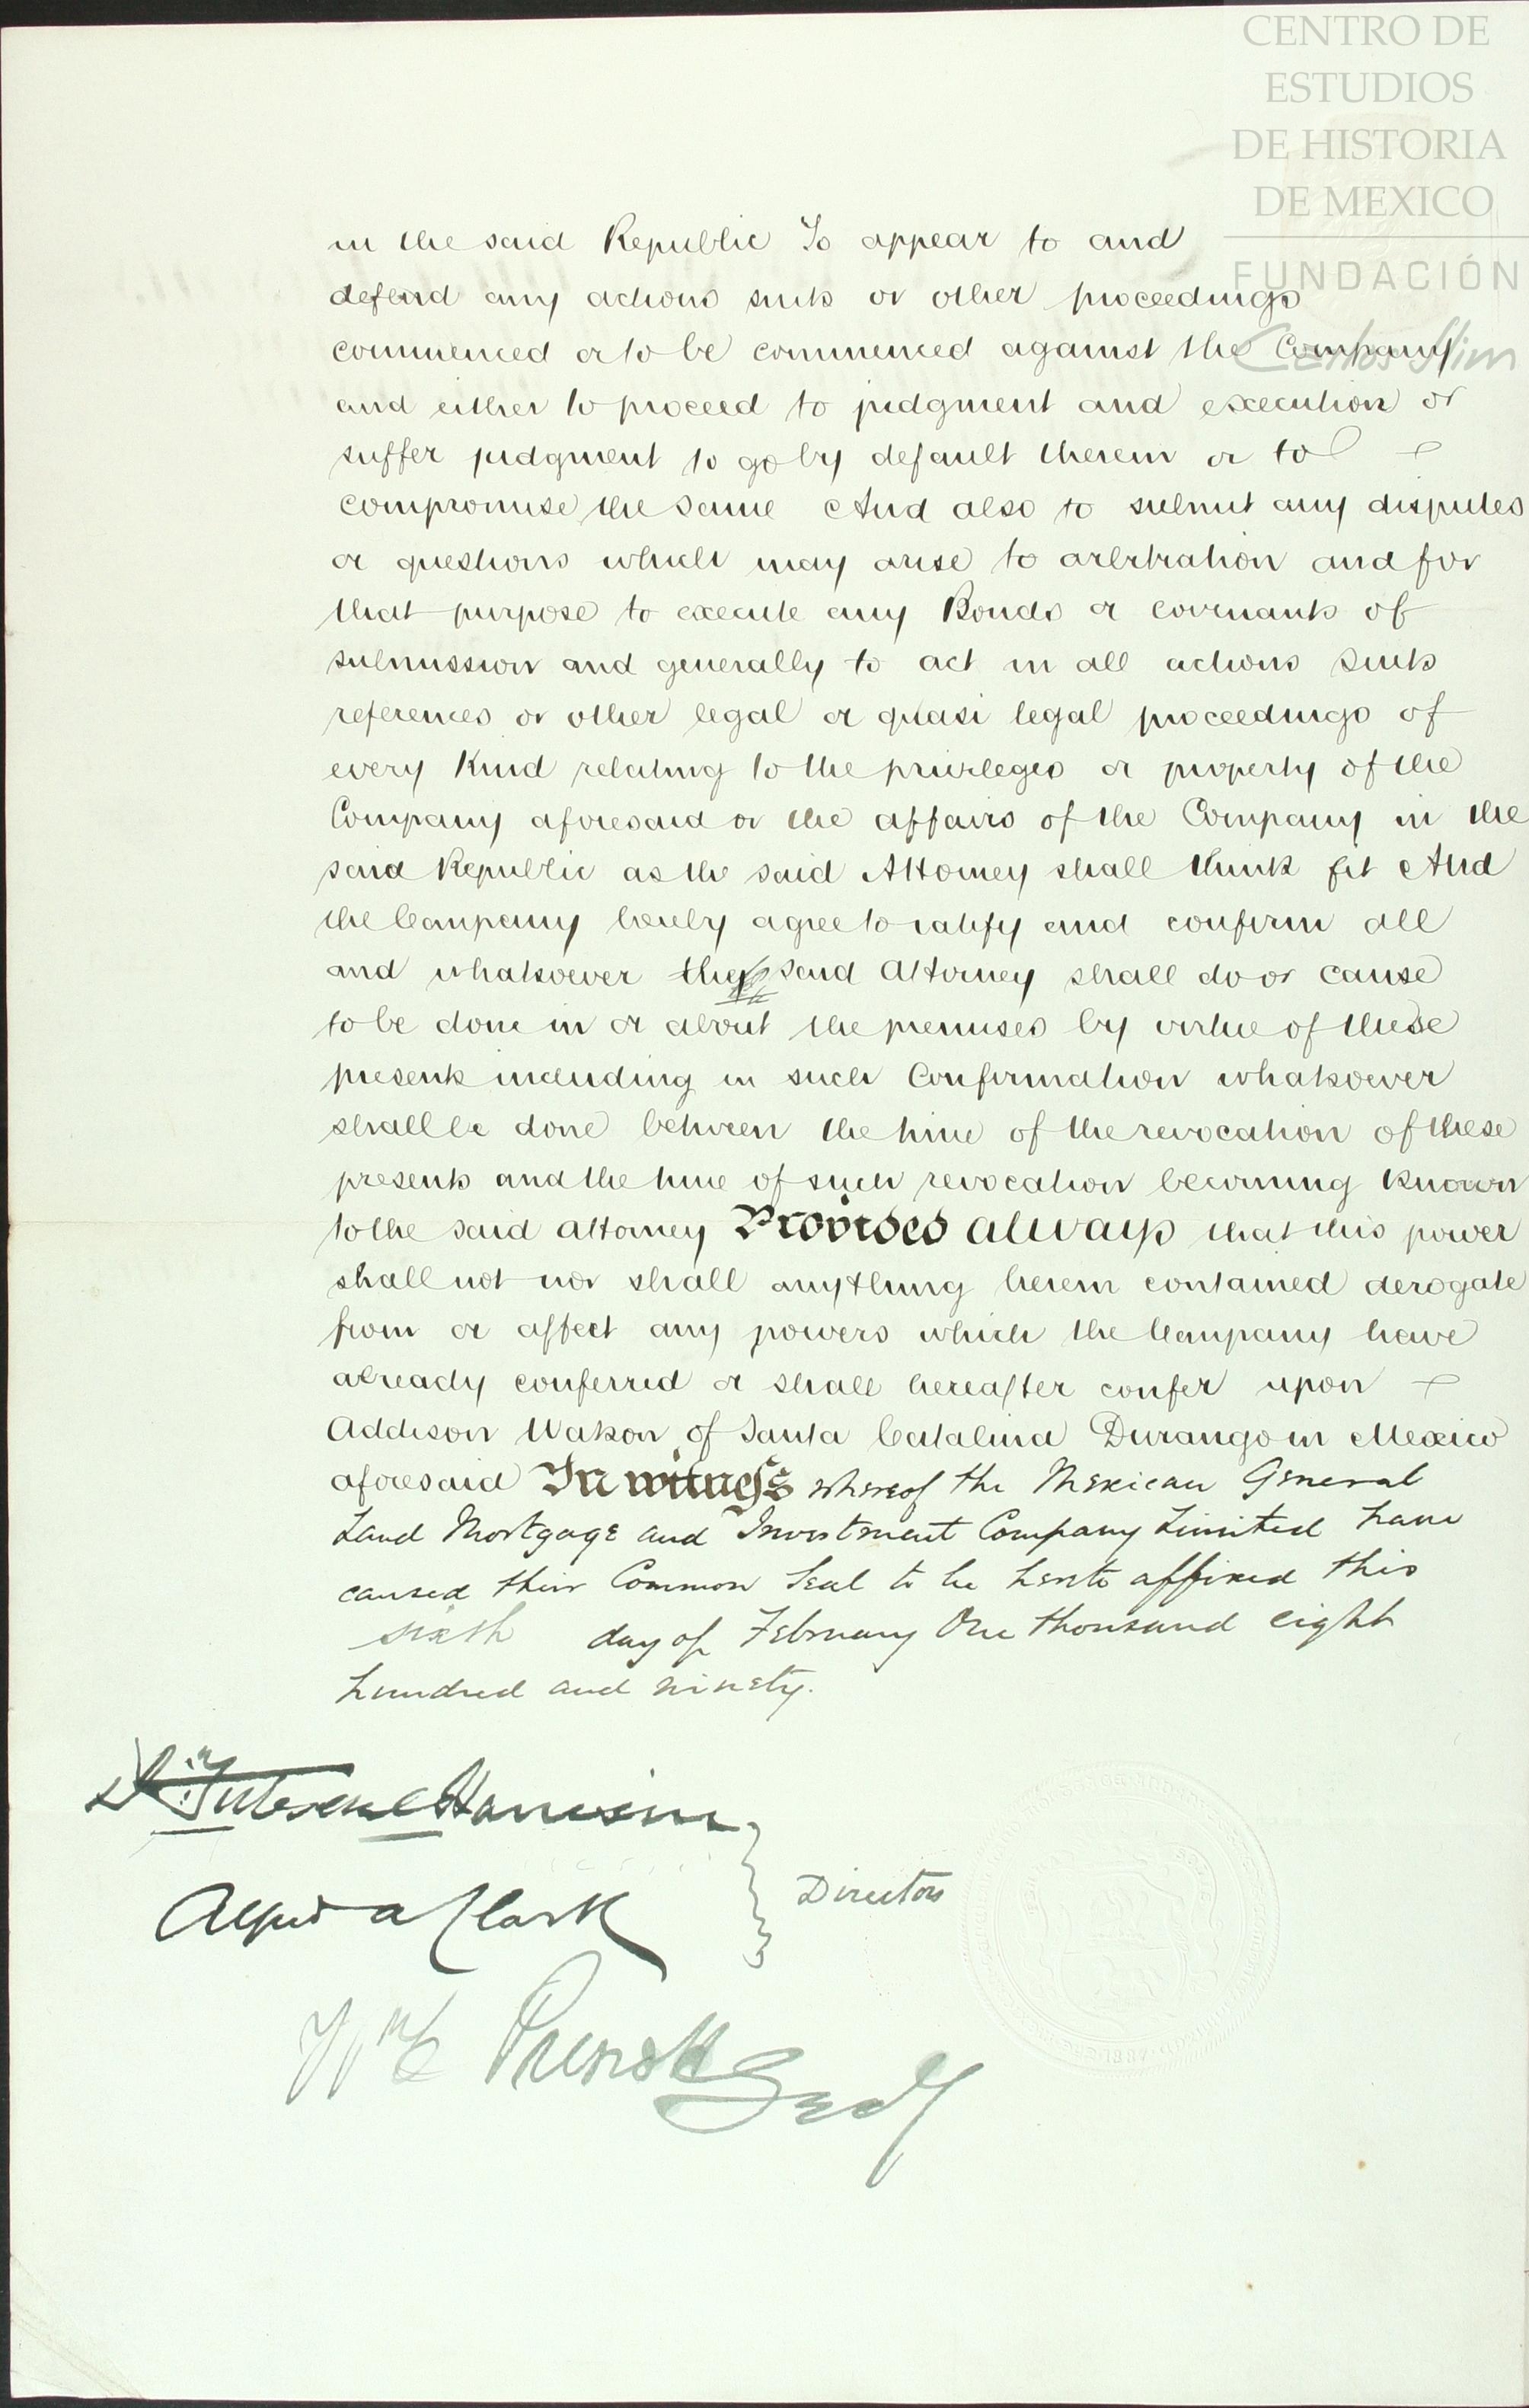 CENTRO DE
ESTUDIOS
DE HISTORIA
DE MEXICO
FUNDACIÓN
Carlos Slim
in the said Republic To appear to and
defend any actions suits or other proceedings
commenced or to be commenced against the Company
and either to proceed to judgment and execution or
suffer judgment to go by default therein or to
compromise the same And also to submit any disputes
or questions which may arise to arbitration and for
that purpose to execute any Bonds or covenants of
submission and generally to act in all actions suits
references or other legal or quasi legal proceedings of
every kind relating to the privileges or property of the
Company aforesaid or the affairs of the Company in the
said Republic as the said Attorney shall think fit And
the Company hereby agree to ratify and confirm all
and whatsoever the said Attorney shall do or cause
to be done in or about the premises by virtue of these
presents including in such Confirmation whatsoever
shall be done between the time of the revocation of these
presents and the time of such revocation becoming known
to the said Attorney Provided always that this power
shall not nor shall anything herein contained derogate
from or affect any powers which the Company have
already conferred or shall hereafter confer upon
Addison Watson of Santa Catalina Durango in Mexico
aforesaid In witness whereof the Mexican General
Land Mortgage and Investment Company Limited have
caused their Common Seal to be hereto affixed this
sixth day of February One thousand eight
hundred and ninety.
Harrison
Alfred A Clark
Directors
Wm Secy